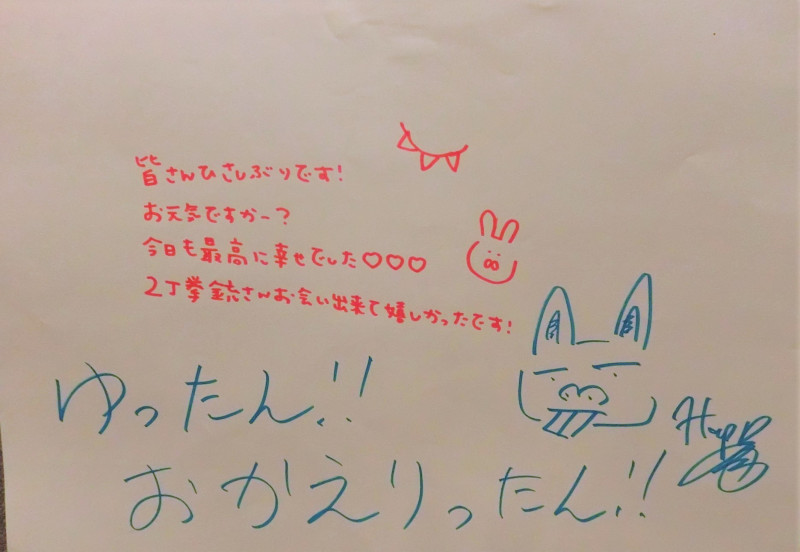 皆さんひさしぶりです！
お元気ですかー？
今日も最高に幸せでした♡♡♡
2丁拳銃さんお会い出来て嬉しかったです！
ゆったん!!
おかえりったん!!